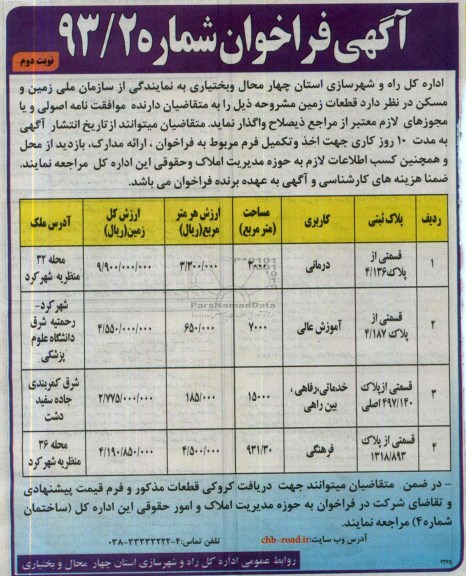 آگهی فراخوان شماره ۹۳/۲
نوبت دوم
اداره کل راه و شهرسازی استان چهار محال وبختیاری به نمایندگی از سازمان ملی زمین و
مسکن در نظر دارد قطعات زمین مشروحه ذیل را به متقاضیان دارنده موافقت نامه اصولی و یا
مجوزهای لازم معتبر از مراجع ذیصلاح واگذار نماید. متقاضیان میتوانند از تاریخ انتشار آگهی
به مدت ۱۰ روز کاری جهت اخذ وتکمیل فرم مربوط به فراخوان ، ارائه مدارک، بازدید از محل
و همچنین کسب اطلاعات لازم به حوزه مدیریت املاک وحقوقی این اداره کل مراجعه نمایند.
ضمنا هزینه های کارشناسی و آگهی به عهده برنده فراخوان می باشد.
ردیف پلاک ثبتی کاربری مساحت (متر مربع) ارزش هر متر مربع(ریال) ارزش کل زمین(ریال) آدرس ملک
۱ قسمتی از پلاک۴/۱۳۶ درمانی ۳۰۰۰ ۳/۳۰۰/۰۰۰ ۹/۹۰۰/۰۰۰/۰۰۰ محله ۳۲ منظریه شهرکرد
۲ قسمتی از پلاک ۴/۱۸۷ آموزش عالی ۷۰۰۰ ۶۵۰/۰۰۰ ۴/۵۵۰/۰۰۰/۰۰۰ شهرکرد- رحمتیه شرق دانشگاه علوم پزشکی
۳ قسمتی ازپلاک ۴۹۷/۱۴۰ اصلی خدماتی،رفاهی، بین راهی ۱۵۰۰۰ ۱۸۵/۰۰۰ ۲/۷۷۵/۰۰۰/۰۰۰ شرق کمربندی جاده سفید دشت
۴ قسمتی از پلاک ۱۳۱۸/۸۹۳ فرهنگی ۹۳۱/۳۰ ۴/۵۰۰/۰۰۰ ۴/۱۹۰/۸۵۰/۰۰۰ محله ۳۶ منظریه شهرکرد
ParsNamadData
- در ضمن متقاضیان میتوانند جهت دریافت کروکی قطعات مذکور و فرم قیمت پیشنهادی
و تقاضای شرکت در فراخوان به حوزه مدیریت املاک و امور حقوقی این اداره کل (ساختمان
شماره۴) مراجعه نمایند.
آدرس وب سایت:chb -road.ir تلفن تماس:۴-۳۳۳۳۲۲۲۲-۰۳۸
روابط عمومی اداره کل راه و شهرسازی استان چهار محال و بختیاری